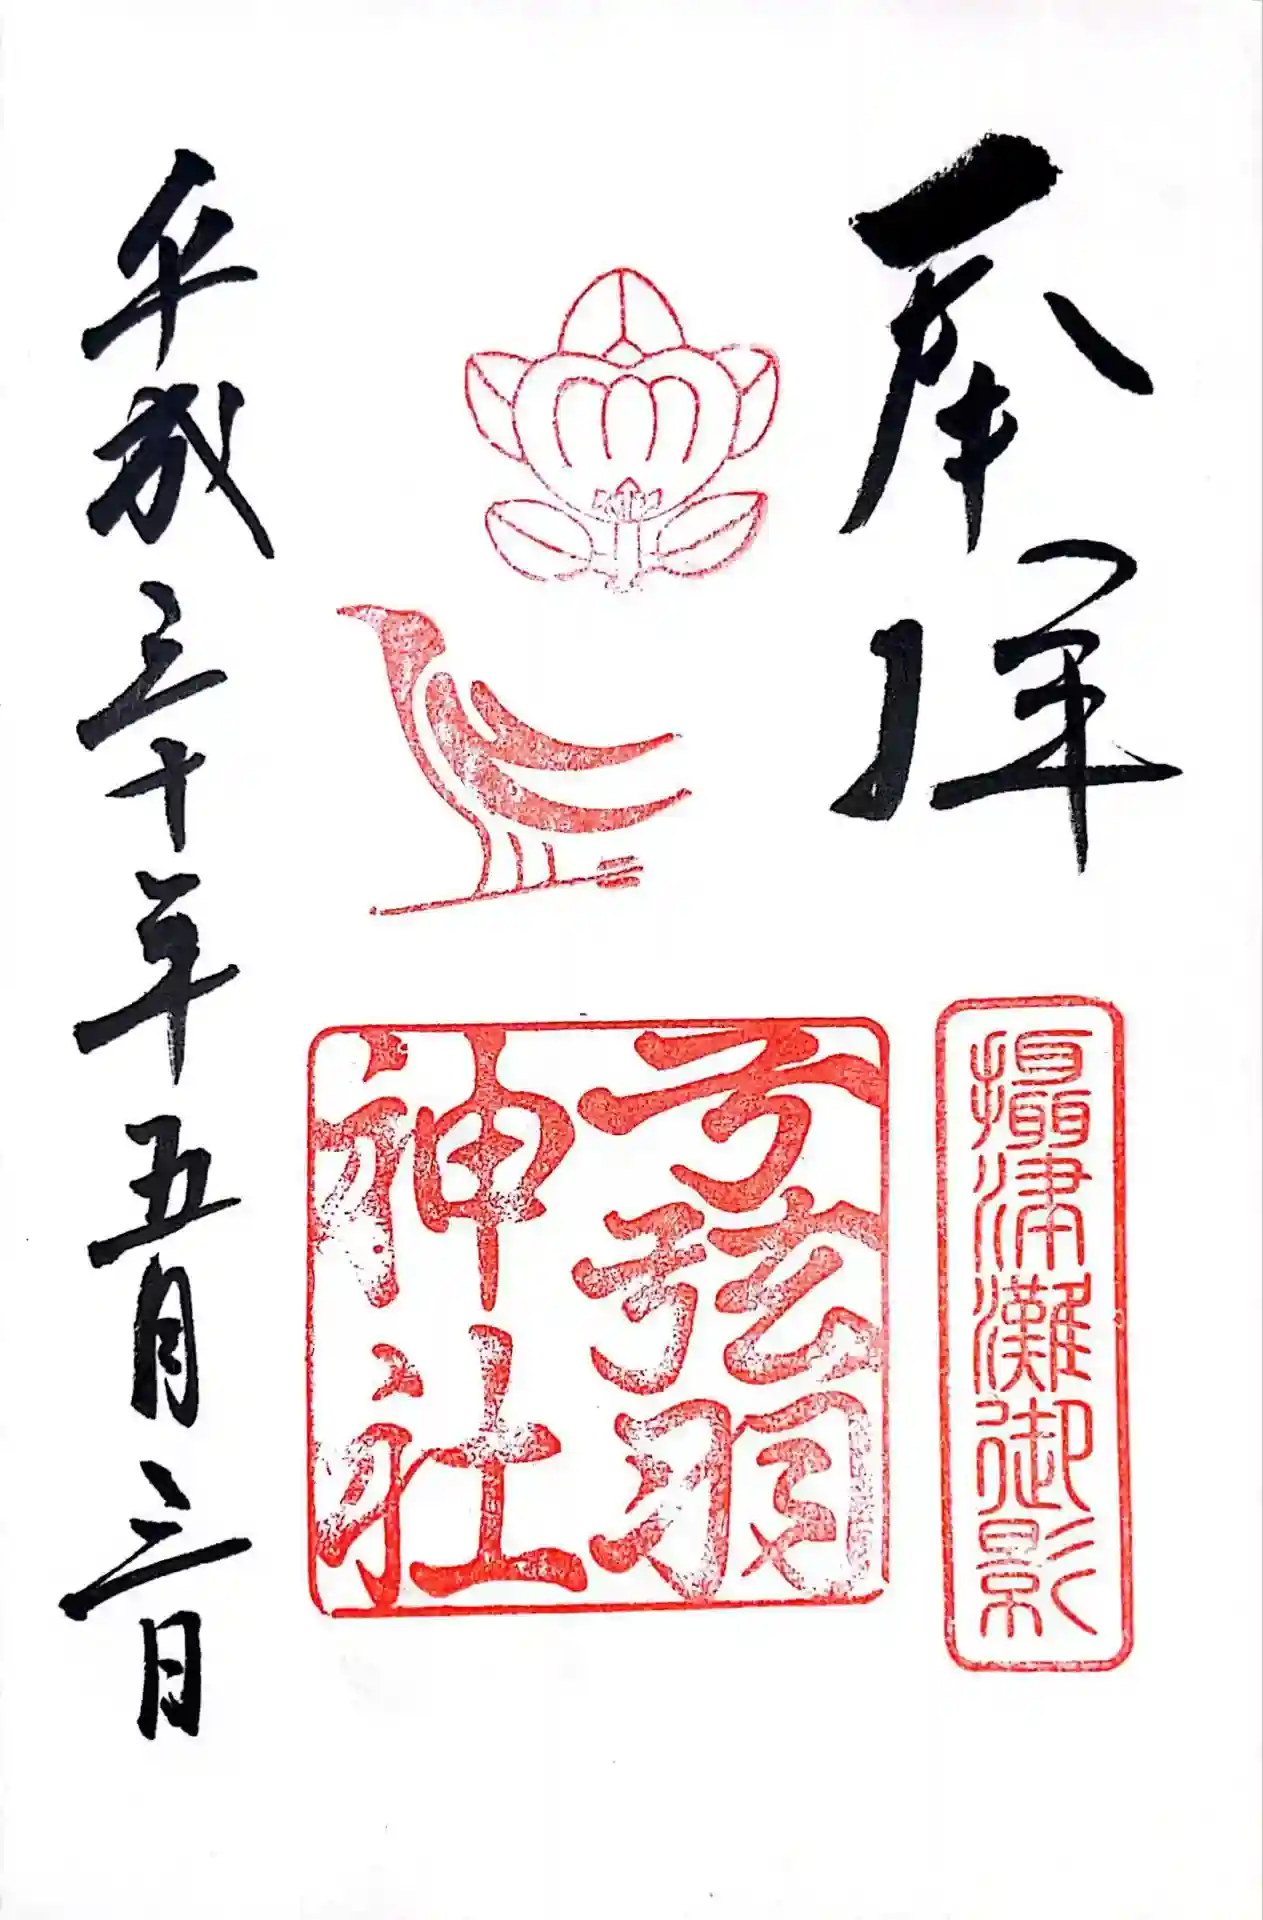 奉拝
攝津灘御影
弓弦羽
神社
平成三十年五月三日